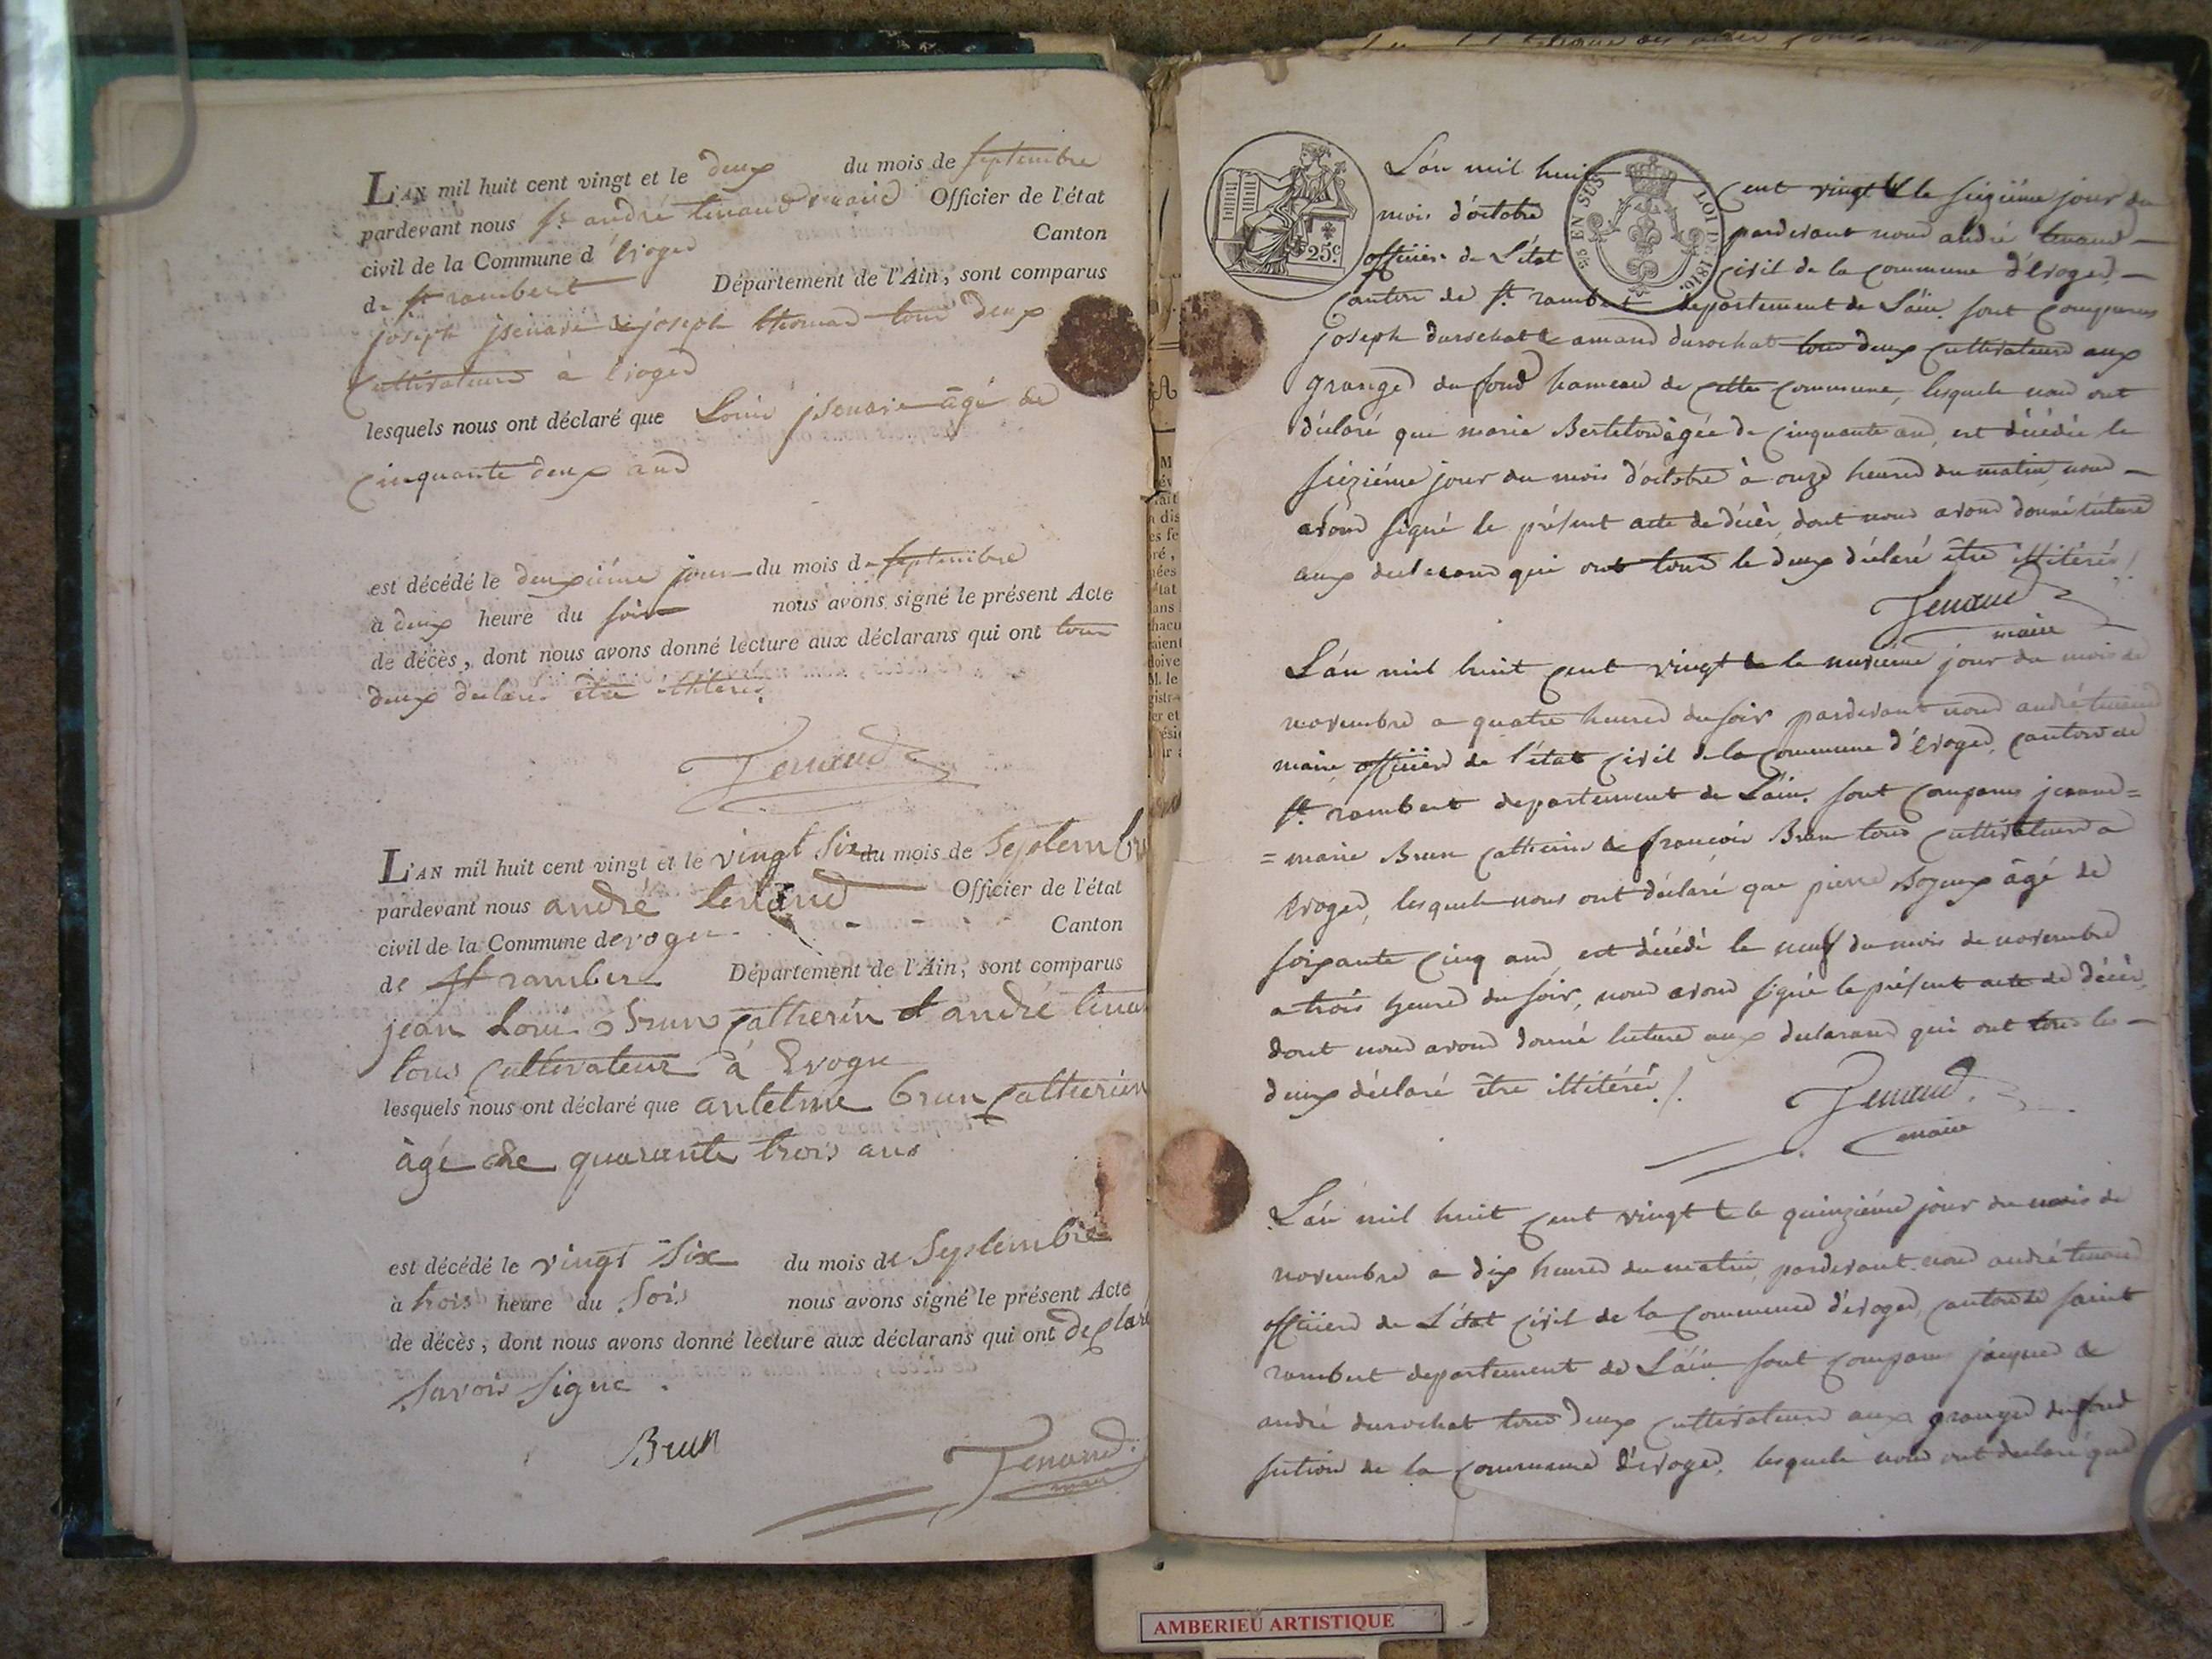 L'AN mil huit cent vingt et le deux du mois de septembre
pardevant nous andré tenand maire Officier de l'état
civil de la Commune d'Evoges Canton
de St rambert Département de l'Ain, sont comparus
joseph jsenare & joseph thomas tous deux
Cultivateurs à Evoges
lesquels nous ont déclaré que Louis jsenare âgé de
Cinquante deux ans
est décédé le deuxième jour du mois de septembre
à deux heure du soir nous avons signé le présent Acte
de décès, dont nous avons donné lecture aux déclarans qui ont tous
deux déclaré être illitérés
Tenand
L'AN mil huit cent vingt et le vingt six du mois de Septembre
pardevant nous andré tenand Officier de l'état
civil de la Commune devoges Canton
de St ramber Département de l'Ain, sont comparus
jean Loui Brun Catherin et andré tena
tous Cultivateur à Evoge
lesquels nous ont déclaré que antelme brun Catherin
àgé de quarante trois ans
est décédé le vingt six du mois de Septembre
à trois heure du soir nous avons signé le présent Acte
de décès, dont nous avons donné lecture aux déclarans qui ont declaré
savoir signé.
Brun
Tenand
maire
L'án mil huit Cent vingt & le seizième jour du
mois d'octobre pardevant nous andré tenand
officier de L'état Civil de la Commune d'Evoges
Canton de St. rambert departement de L'áin. sont Comparus
25c
EN SUS
LOI DE 1816.
joseph durochat & amand durochat tous deux Cultivateurs aux
granges du fond hameau de Cette Commune, lesquels nous ont
déclaré que marie Berteton âgée de Cinquante ans, est décédée le
seizième jour du mois d'octobre à onze heures du matin, nous
avons signé le présent acte de décès, dont nous avons donné lecture
aux declarans qui ont tous le deux déclaré être illitérés
Tenand
maire
L'án mil huit Cent vingt & le neuvième jour du mois de
novembre a quatre heures du soir pardevant nous andré tenand
maire, officier de l'état Civil de la Commune d'Evoges, Canton de
St. rambert departement de L'áin. sont Comparus jeanne=
=marie Brun Catherin & françois Brun tous Cultivateurs a
Evoges, lesquels nous ont déclaré que pierre Bozeux âgé de
soixante Cinq ans, est décédé le neuf du mois de novembre
a trois heures du soir, nous avons signé le présent acte de décès,
dont nous avons donné lecture aux declarans qui ont tous les
deux déclaré être illitérés
Tenand
maire
L'án mil huit Cent vingt & le quinzième jour du mois de
novembre a dix heures du matin, pardevant nous andré tenand
officier de L'état Civil de la Commune d'evoges, Canton de saint
rambert departement de L'áin sont Comparus jacques &
andré durochat tous deux Cultivateurs aux granges du fond
section de la Commune d'evoges, lesquels nous ont declaré que
AMBERIEU ARTISTIQUE